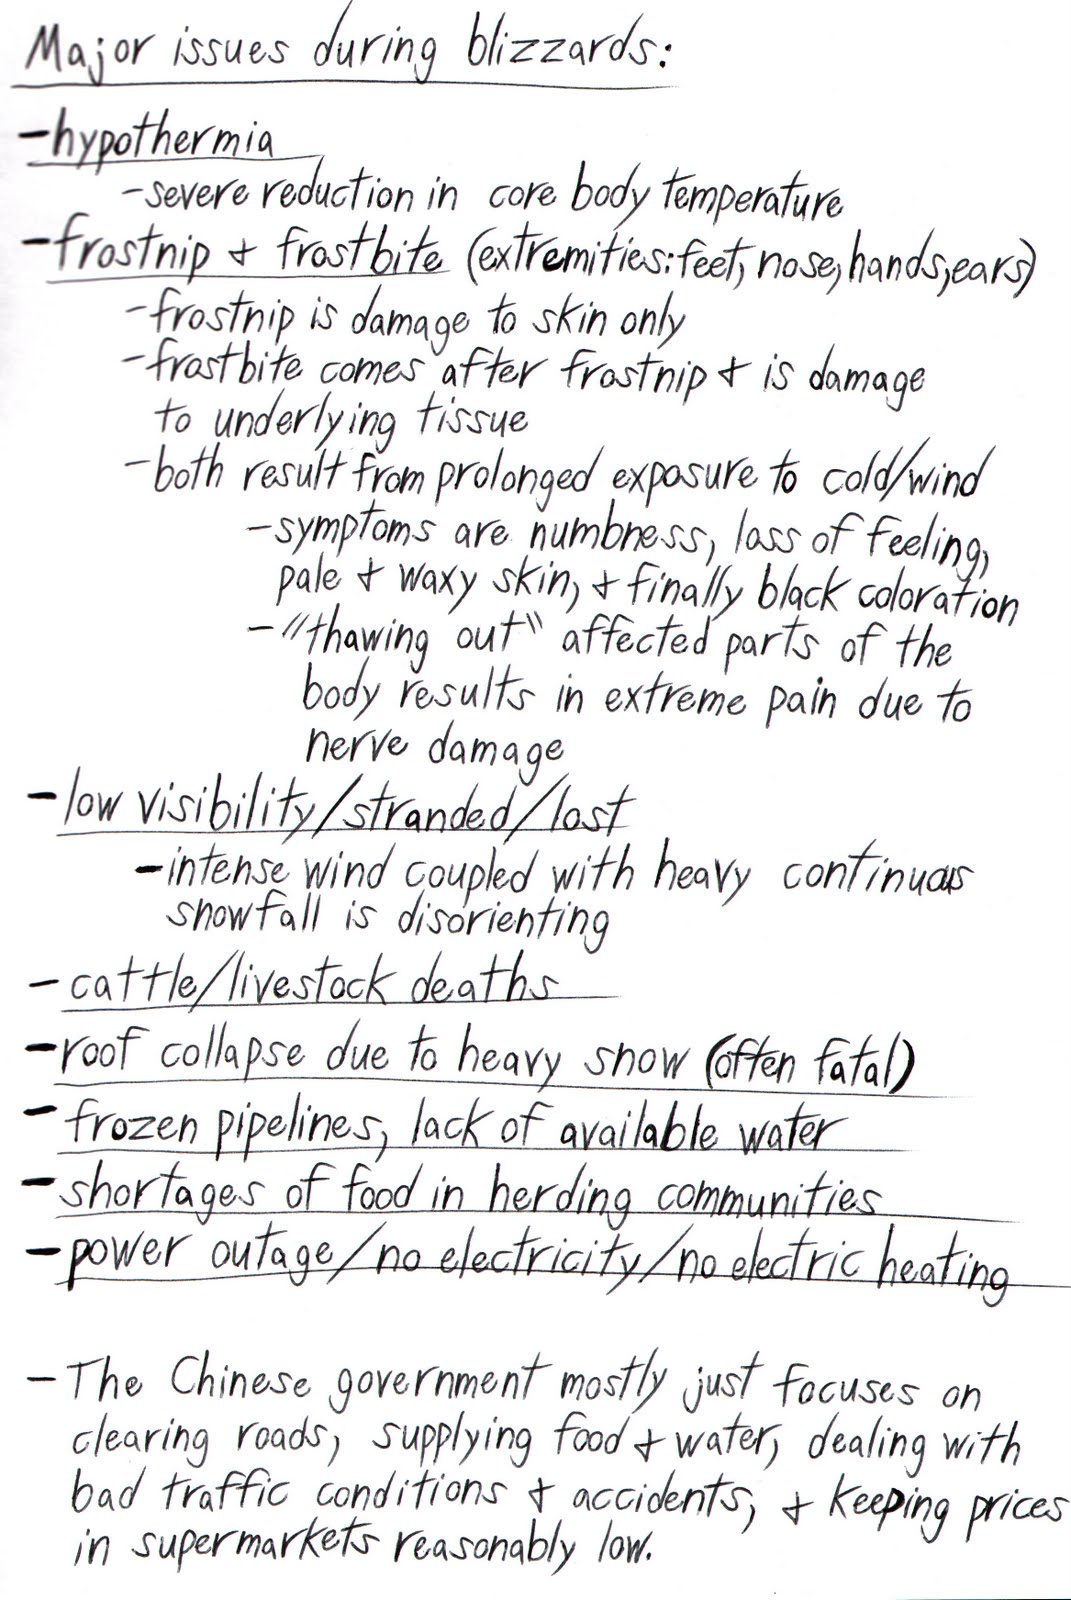 Major issues during blizzards:
-hypothermia
-severe reduction in core body temperature
-frostnip & frostbite (extremities: feet, nose, hands, ears)
-frostnip is damage to skin only
-frostbite comes after frostnip & is damage
to underlying tissue
-both result from prolonged exposure to cold/wind
-symptoms are numbness, loss of feeling,
pale & waxy skin, & finally black coloration
-"thawing out" affected parts of the
body results in extreme pain due to
nerve damage
-low visibility/stranded/lost
-intense wind coupled with heavy continuous
snowfall is disorienting
-cattle/livestock deaths
-roof collapse due to heavy snow (often fatal)
-frozen pipelines, lack of available water
-shortages of food in herding communities
-power outage/no electricity/no electric heating
-The Chinese government mostly just focuses on
clearing roads, supplying food & water, dealing with
bad traffic conditions & accidents, & keeping prices
in supermarkets reasonably low.